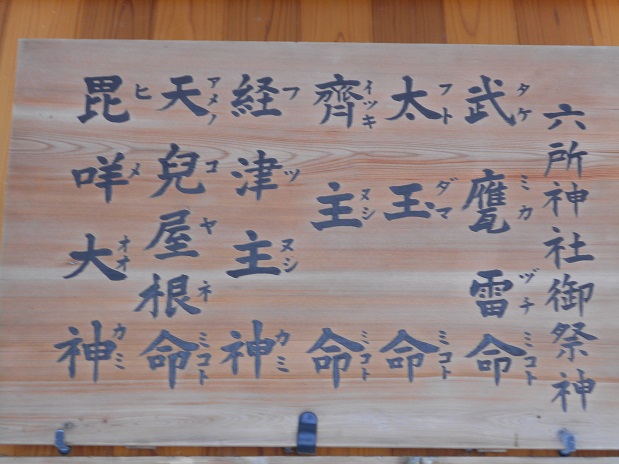 六所神社御祭神
武甕雷命 タケミカヅチミコト
太玉命 フトダマミコト
齊主命 イツキヌシミコト
経津主神 フツヌシカミ
天兒屋根命 アメノコヤネミコト
毘咩大神 ヒメオオカミ